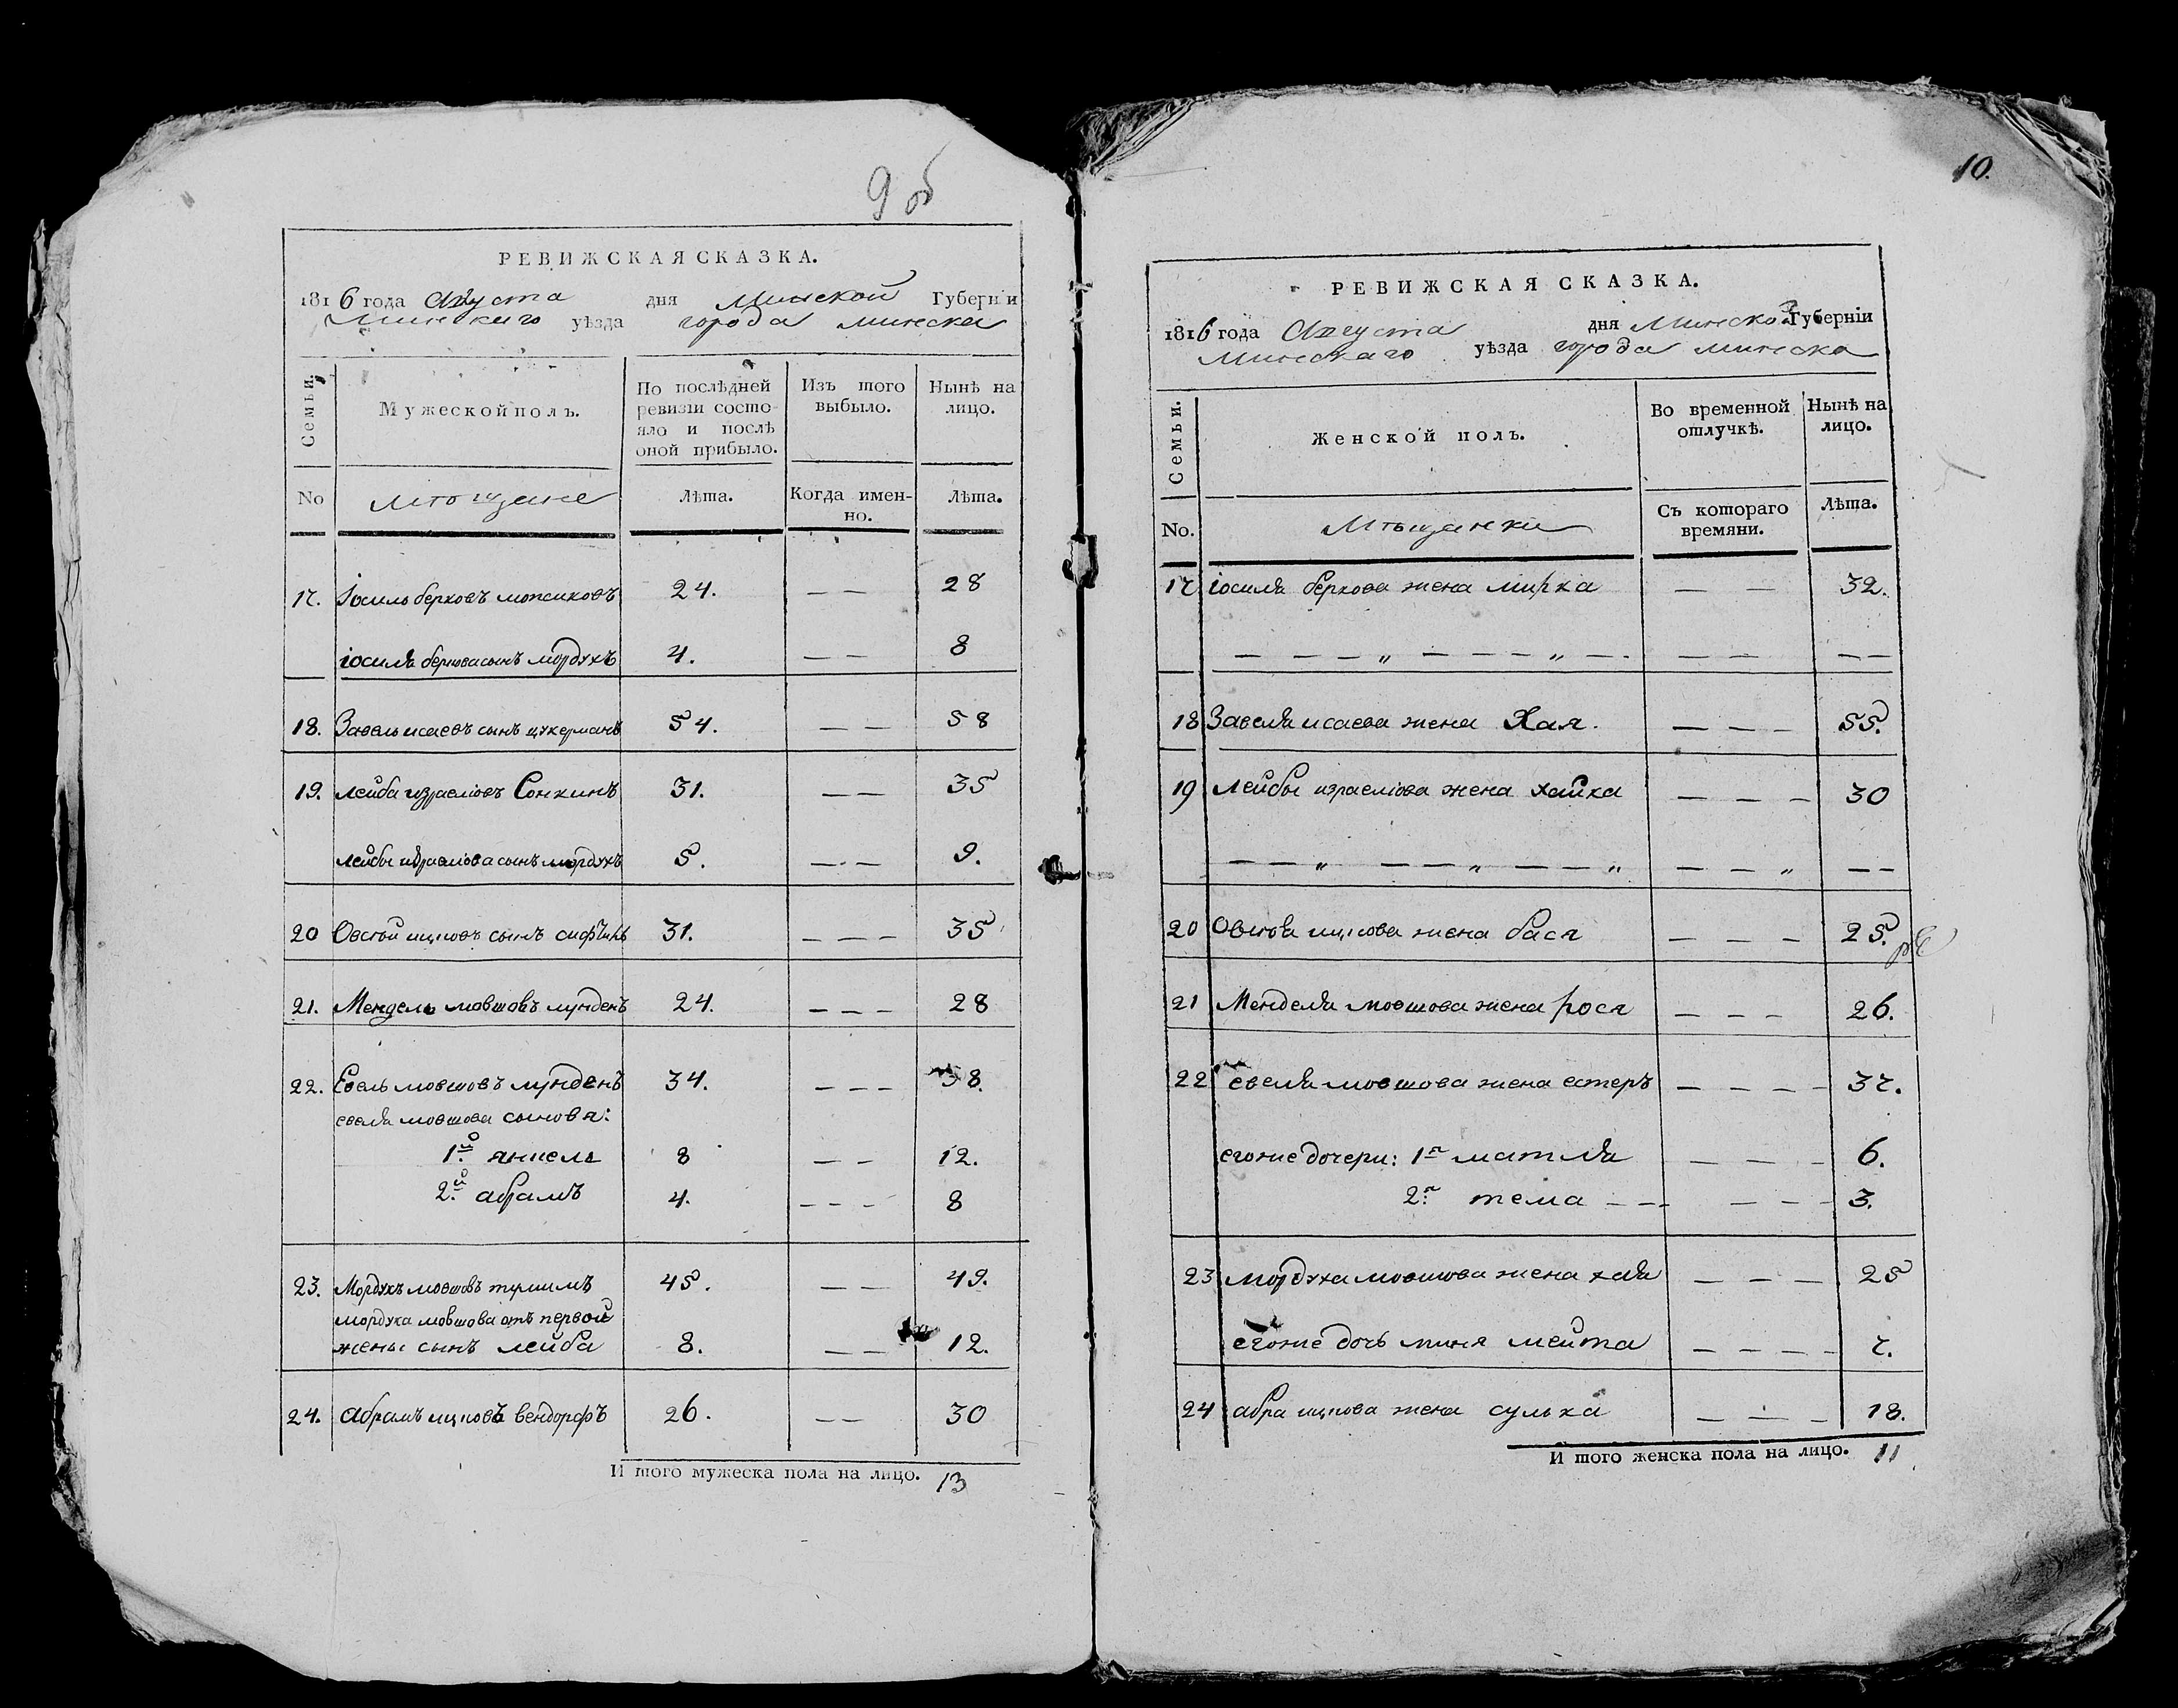 9 об
РЕВИЖСКАЯ СКАЗКА.
1816 года Августа дня Минской Губерніи
Минскаго уѣзда города минска
Семьи.
Мужеской полъ.
По послѣдней ревизіи состояло и послѣ оной прибыло.
Изъ того выбыло.
Нынѣ на лицо.
No мѣщане Лѣта. Когда именно. Лѣта.
17. Іосиль берковъ 24. — — 28
іосиля беркова сынъ мордухъ 4. — — 8
18. Завель исаевъ сынъ цукерманъ 54. — — 58
19. лейба израеліовъ Сонкинъ 31. — — 35
лейбы израеліова сынъ мордухъ 5. — — 9.
20 Овсѣй ицковъ сынъ 31. — — — 35
21. Мендель мовшовъ лунденъ 24. — — — 28
22. Евель мовшовъ лунденъ 34. — — — 38.
евеля мовшова сыновя:
1й янкель 8 — — 12.
2й абрамъ 4. — — — 8
23. Мордухъ мовшовъ 45. — — 49.
мордуха мовшова отъ первой
жены сынъ лейба 8. — — 12.
24. абрамъ ицковъ вендорфъ 26. — — 30
И того мужеска пола на лицо. 13
10.
РЕВИЖСКАЯ СКАЗКА.
1816 года Августа дня Минской Губерніи
Минскаго уѣзда города минска
Семьи.
Женской полъ.
Во временной отлучкѣ.
Нынѣ на лицо.
No. Мѣщанки Съ котораго времяни. Лѣта.
17 іосиля беркова жена мирка — — 32.
— — — „ — — — „ — — — — — —
18 Завеля исаева жена Хая. — — — 55.
19 лейбы израеліова жена хайка — — — 30
— — „ — — „ — — „ — — „ — —
20 Овсѣя ицкова жена бася — — — 25.
21 Менделя мовшова жена рося — — — 26.
22 евеля мовшова жена естеръ — — — — 37.
егоже дочери: 1я матля — — — 6.
2я тема — — — — — 3.
23 мордуха мовшова жена хая — — — 25
егоже дочь мейта — — — — 7.
24 абра ицкова жена сулька — — — 18.
И того женска пола на лицо. 11